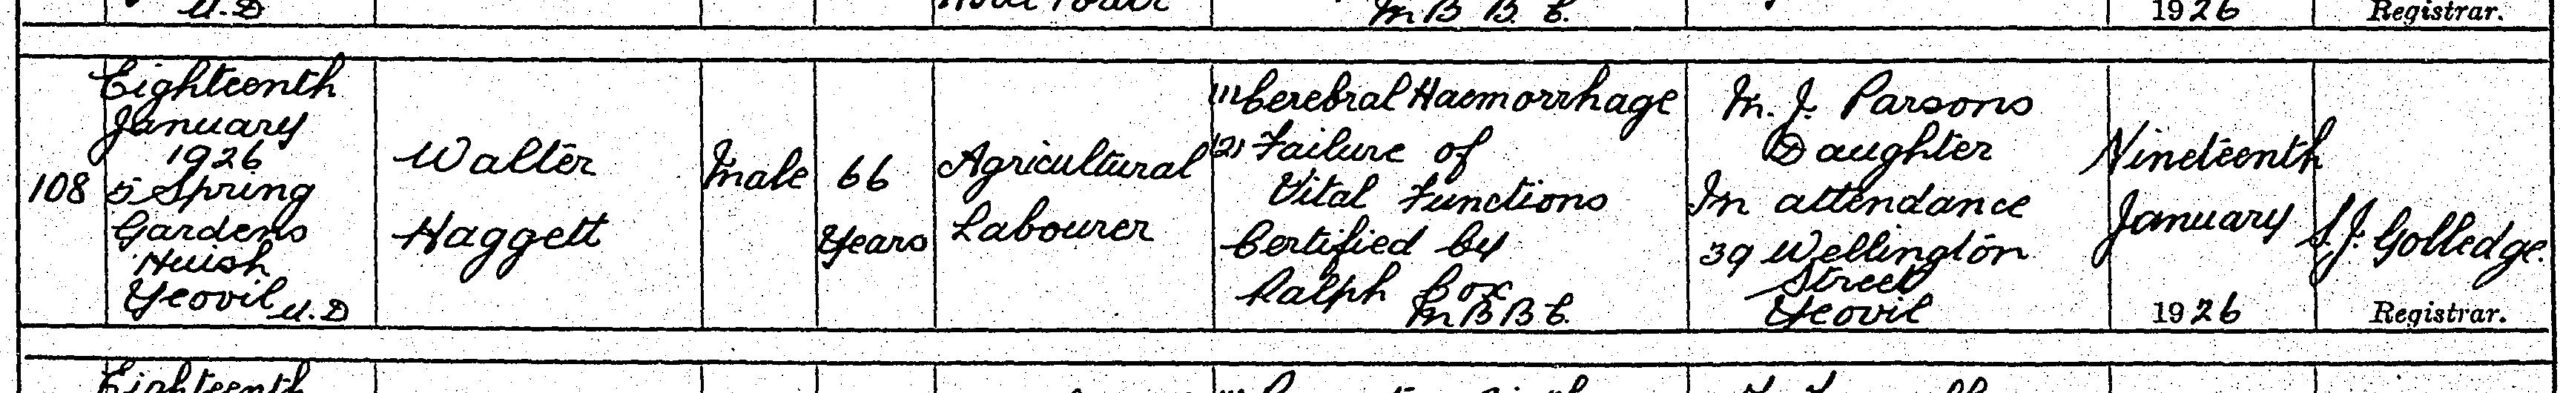 U.D
M B B. C.
1926
Registrar.
108
Eighteenth
January
1926
5 Spring
Gardens
Huish
Yeovil U.D
Walter
Haggett
Male
66
Years
Agricultural
Labourer
(1) Cerebral Haemorrhage
(2) Failure of
Vital Functions
Certified by
Ralph Cox
M B B C.
M. J. Parsons
Daughter
In attendance
39 Wellington
Street
Yeovil
Nineteenth
January
1926
S. J. Golledge.
Registrar.
Eighteenth